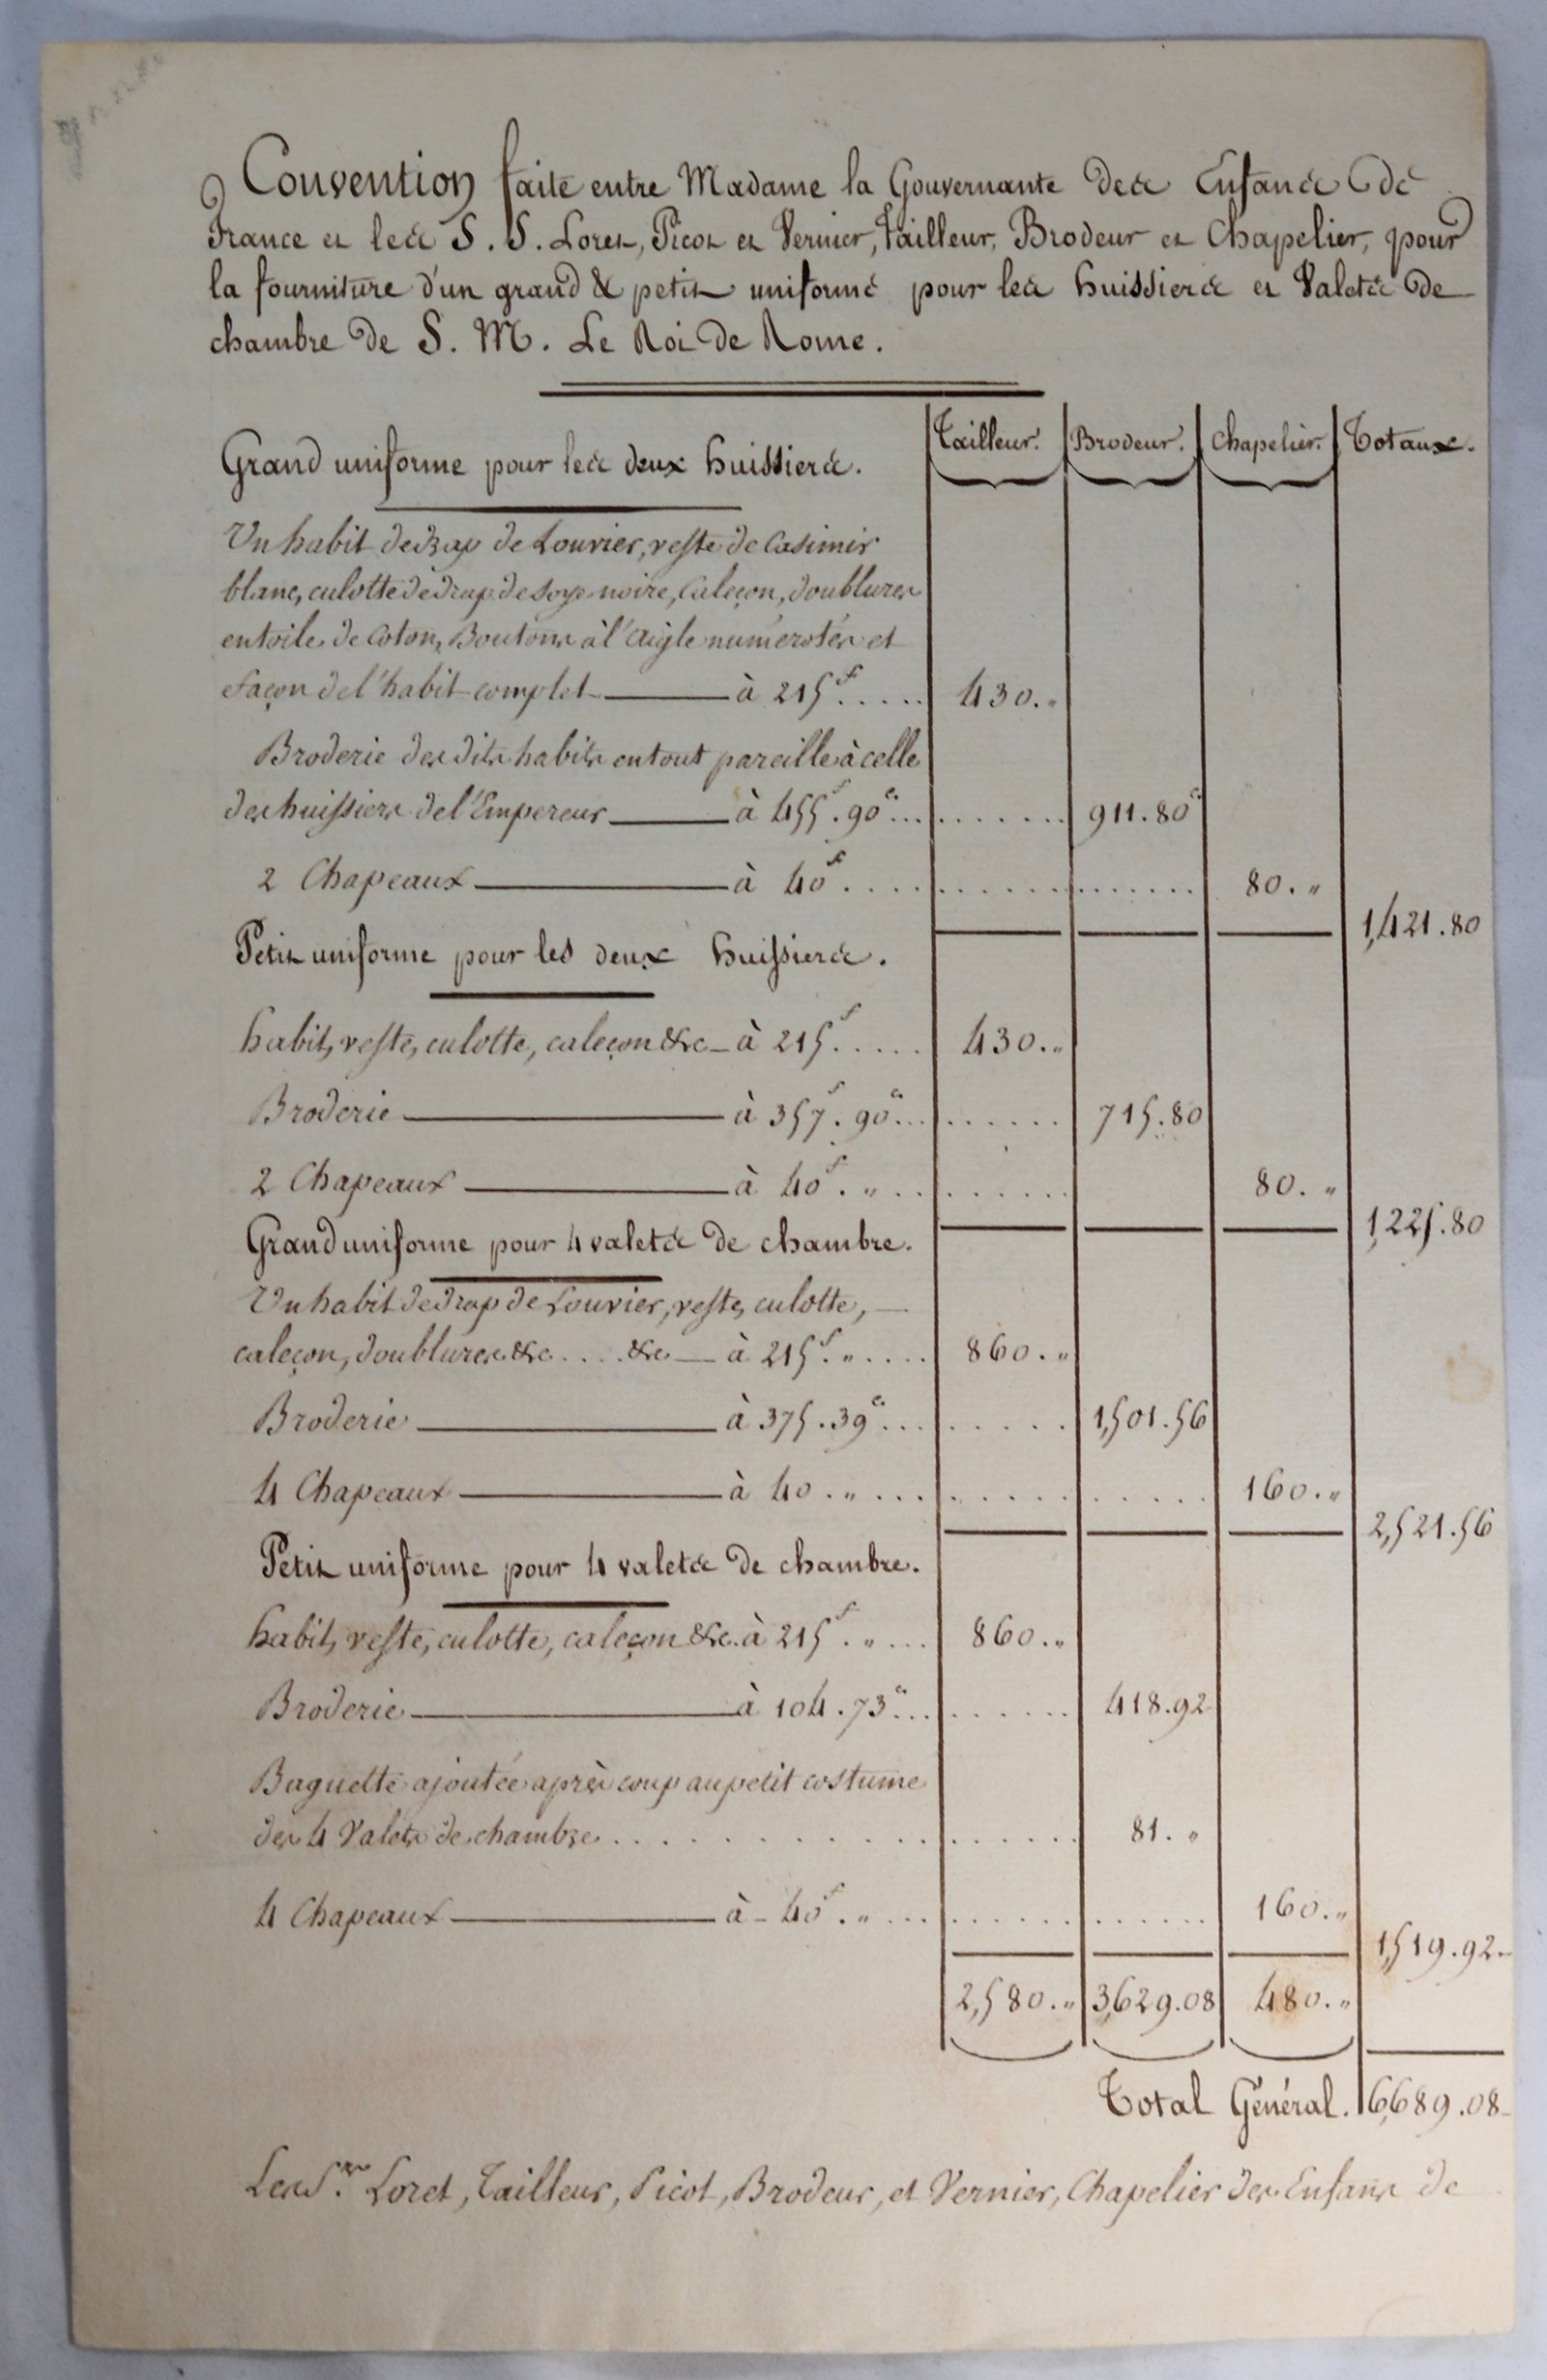 Convention faite entre Madame la Gouvernante des Enfans de
France et les S. S. Loret, Picot et Vernier, Tailleur, Brodeur et Chapelier, pour
la fourniture d'un grand & petit uniforme pour les huissiers et Valets de
chambre de S. M. Le Roi de Rome.
Tailleur. Brodeur. Chapelier. Totaux.
Grand uniforme pour les deux huissiers.
Un habit de drap de Louvier, veste de Casimir
blanc, culotte de drap de soye noire, Caleçon, doublures
en toile de Coton, Boutons à l'aigle numérotés et
façon de l'habit complet à 215f. .... 430. "
Broderie des dits habits en tout pareille à celle
des huissiers de l'Empereur à 455f. 90c ... 911. 80c
2 Chapeaux à 40f .... 80. "
1,421. 80
Petit uniforme pour les deux huissiers.
habit, veste, culotte, caleçon &c à 215f. .... 430. "
Broderie à 357f. 90c ... 715. 80
2 Chapeaux à 40f. " .. 80. "
1,225. 80
Grand uniforme pour 4 valets de chambre.
Un habit de drap de Louvier, veste, culotte,
caleçon, doublures &c .... &c à 215f. " .... 860. "
Broderie à 375. 39c ... 1,501. 56
4 Chapeaux à 40. " ... 160. "
2,521. 56
Petit uniforme pour 4 valets de chambre.
habit, veste, culotte, caleçon &c. à 215f. " ... 860. "
Broderie à 104. 73c ... 418. 92
Baguette ajoutée après coup au petit costume
des 4 Valets de chambre ........ 81. "
4 Chapeaux à 40f. " ... 160. "
1,519. 92
2,580. " 3,629. 08 480. "
Total Général. 6,689. 08
Les Srs. Loret, Tailleur, Picot, Brodeur, et Vernier, Chapelier des Enfans de